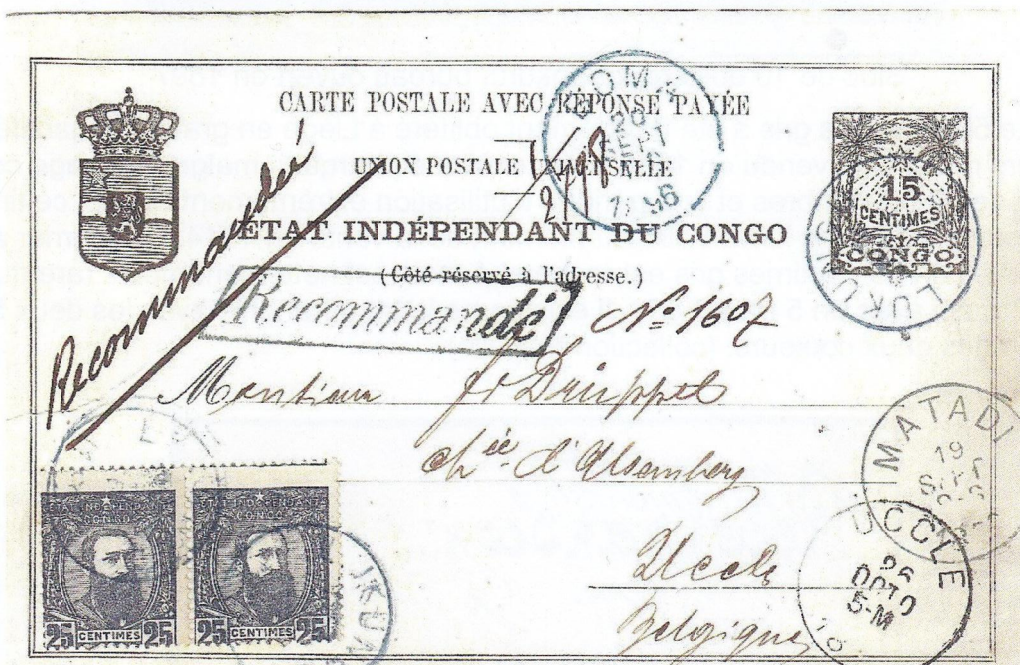 CARTE POSTALE AVEC RÉPONSE PAYÉE
UNION POSTALE UNIVERSELLE
ÉTAT INDÉPENDANT DU CONGO
(Côté réservé à l'adresse.)
15
CENTIMES
CONGO
BOMA
20
SEPT
LUKUNGU
Recommandé
Recommandé
Nº 1607
Monsieur
chée d'Alsemberg
Uccle
Belgique
MATADI
19
SEPT
UCCLE
26
OCT
5-M
25 CENTIMES 25
25 CENTIMES 25